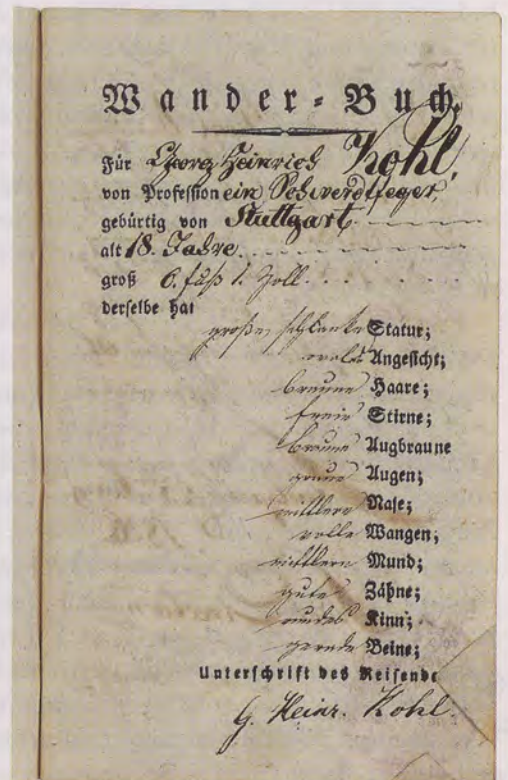 Wander-Buch.
Für Georg Heinrich Kohl,
von Profession ein Schwerdtfeger,
gebürtig von Stuttgart
alt 18. Jahre.
groß 6. fuß 1. Zoll.
derselbe hat
große, schlanke Statur;
ovales Angesicht;
braune Haare;
freie Stirne;
braune Augbraune
graue Augen;
mittlere Nase;
volle Wangen,
mittlern Mund;
gute Zähne;
rundes Kinn;
gerade Beine;
Unterschrift des Reisende
G. Heinr. Kohl.